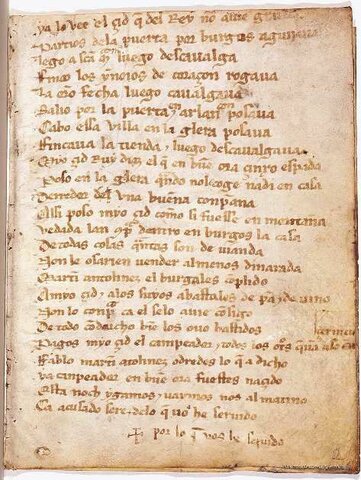 ya lo vee el çid q del Rey nõ avie gr̃a
Partios dela puerta por burgos aguijaua
lego a sc̃ta mª luego descaualga
finco los ynoios de coraçon rogaua
La orõ fecha luego caualgaua
Salio por la puerta en arlançõ posaua
Cabo essa villa en la glera posaua
fincaua la tienda, luego descaualgaua
Myo çid Ruy diaz el q en buẽ ora cinxo espada
Poso en la glera qñdo nol coge nadi en casa
Derredor del una buena conpana
Assi poso myo çid como si fuesse en montana
vedada lan cõpra dentro en burgos la casa
De todas cosas quãtas son de uianda
Non le osarien uender almenos dinarada
Martĩ antolinez el burgales cõplido
A myo çid, alos suyos abastales de pã, de uino
Non lo conpra ca el selo auie cõsigo
De todo conducho biẽ los ouo bastidos
Pagos myo çid el campeador, todos los otros
fablo martĩ antolinez odredes lo q a dicho
ya canpeador en buẽ ora fuestes naçido
Esta noch ygamos, uaymos nos al matino
Ca acusado sere delo q uos he seruido
por lo q uos he seruido